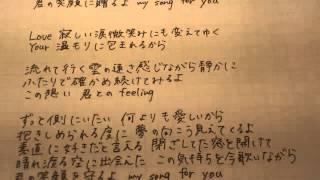 君の笑顔に贈るよ my song for you
Love 寂しい涙微笑みにも変えてゆく
Your 温もりに包まれるから
流れて行く雲の速さ感じながら静かに
ふたりで確かめ続けてみるよ
この想い 君との feeling
ずっと側にいたい 何よりも愛しいから
抱きしめられる度に 夢の向こう見えてくるよ
素直に好きだと言える 閉ざしてた窓を開けて
晴れ渡る空に出会えた この気持ちを今歌いながら
君の笑顔を守るよ my song for you